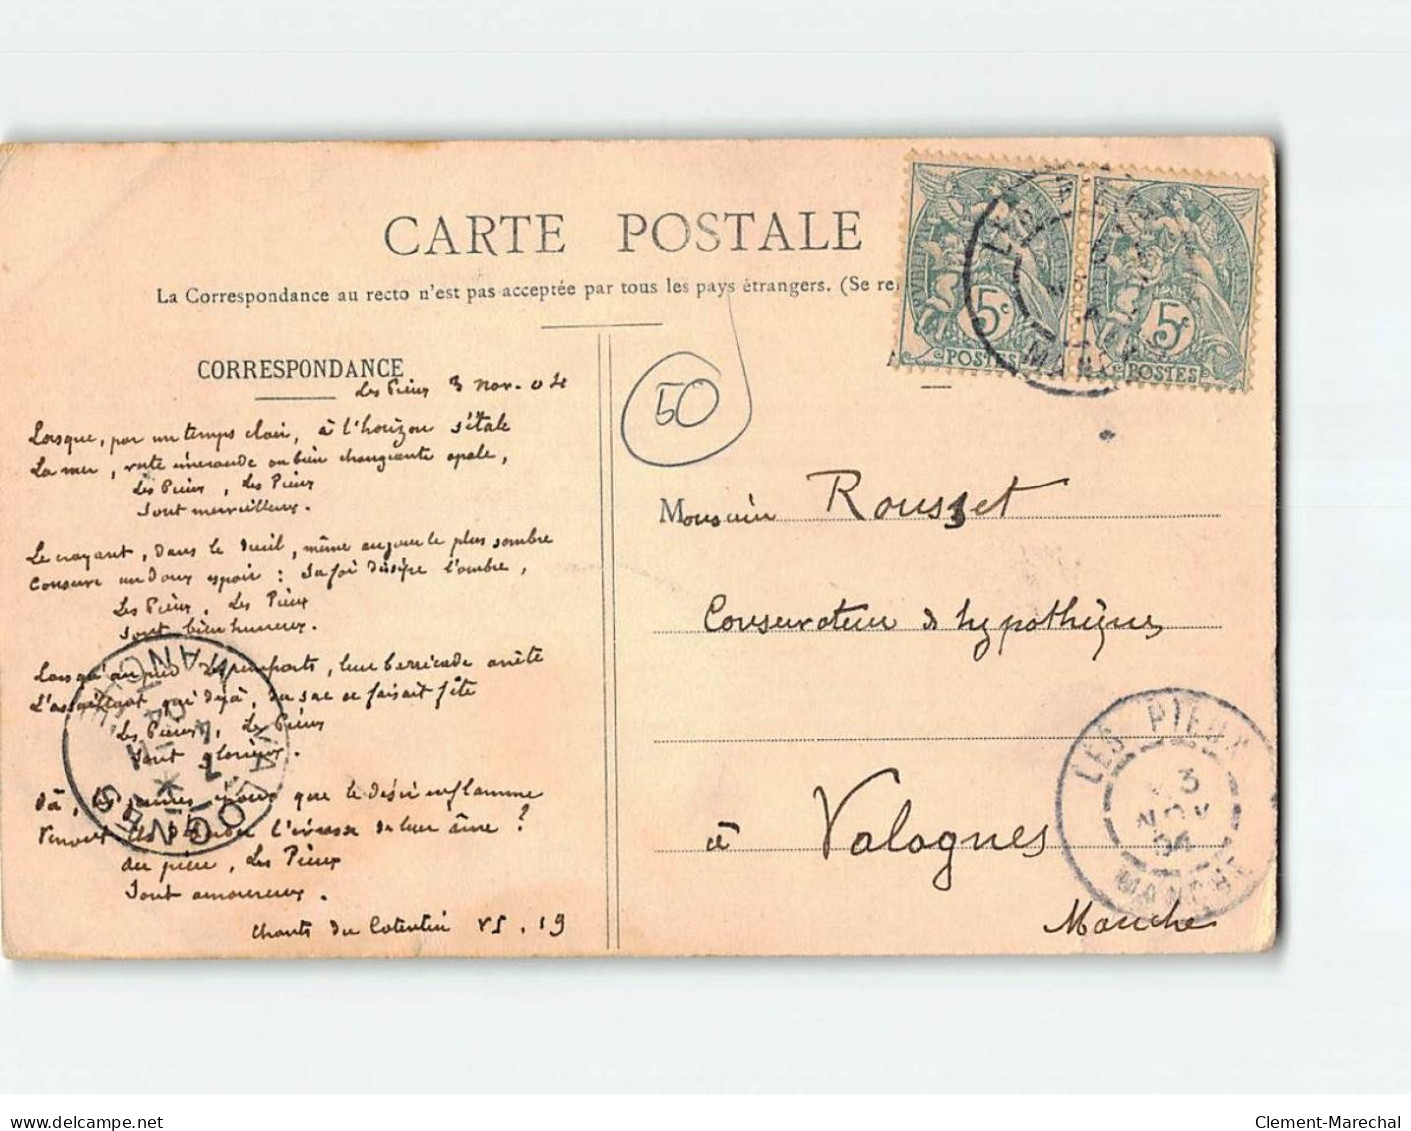 CARTE POSTALE
La Correspondance au recto n'est pas acceptée par tous les pays étrangers. (Se re
CORRESPONDANCE
Les Pieux 3 nov. 04
Lorsque, par un temps clair, à l'horizon s'étale
La mer, verte émeraude ou bien changeante opale,
Les Pieux, Les Pieux
Sont merveilleux.
Le croyant, dans le deuil, même au jour le plus sombre
Conserve un doux espoir : sa foi dissipe l'ombre,
Les Pieux, Les Pieux
Sont bienheureux.
Lorsqu'au pied remparts, leur barricade arrête
L'assaillant qui déjà, du sac se faisait fête
Les Pieux, Les Pieux
Sont glorieux.
Où, les jeunes époux que le désir enflamme
l'ivresse de leur âme ?
au pieu, Les Pieux
Sont amoureux.
Chants du Cotentin VS. 19
50
5c
POSTES
5c
POSTES
LES PIEUX
MANCHE
Monsieur Rousset
Conservateur des hypothèques
à Valognes
Manche
LES PIEUX
3
NOV
04
MANCHE
VALOGNES
7
4 -11
04
MANCHE
delcampe.net
Clement-Marechal